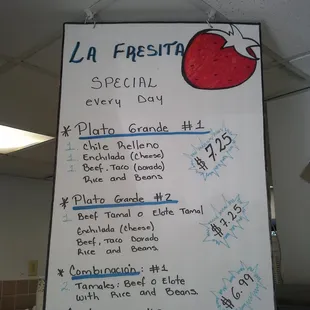 La Fresita
SPECIAL
every Day
* Plato Grande #1
1 Chile Relleno
1 Enchilada (cheese)
1 Beef, Taco (Dorado)
Rice and Beans
$7.25
* Plato Grande #2
1 Beef Tamal o Elote Tamal
Enchilada (cheese)
Beef, Taco Dorado
Rice and Beans
$7.25
* Combinación: #1
2 Tamales: Beef o Elote
with Rice and Beans
$6.99